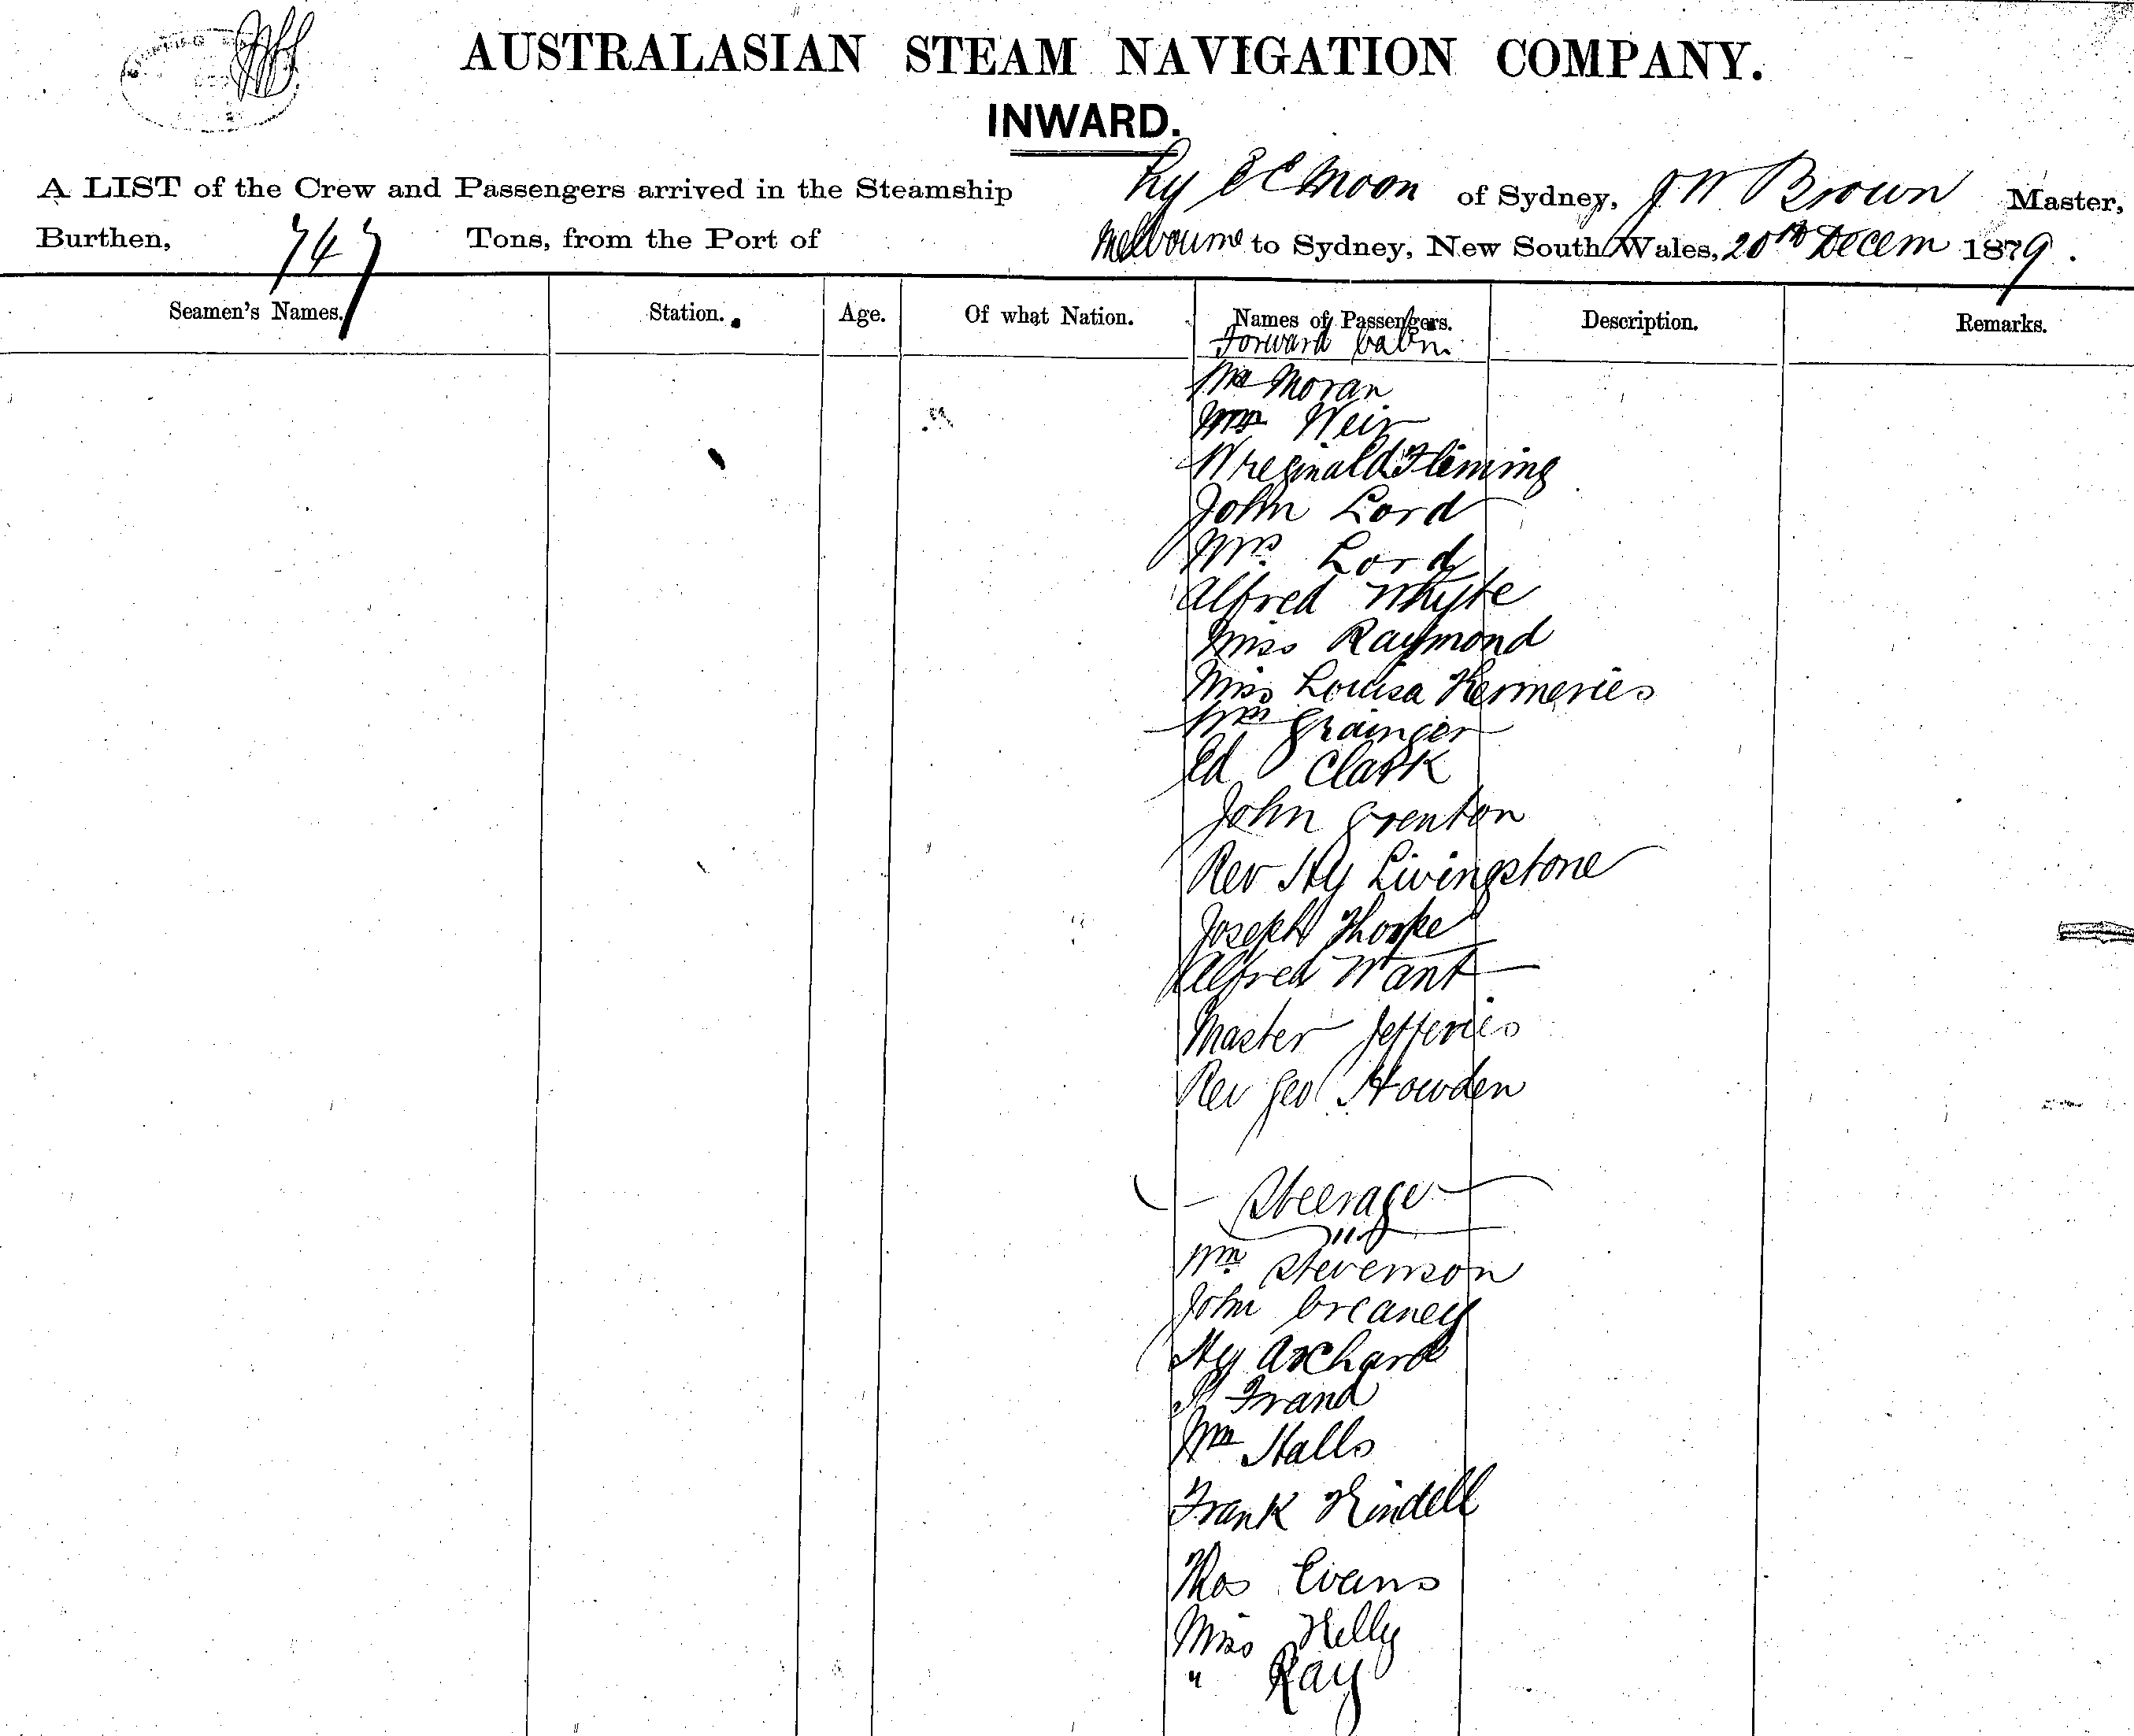 AUSTRALASIAN STEAM NAVIGATION COMPANY.
INWARD.
A LIST of the Crew and Passengers arrived in the Steamship Ly E C Moon of Sydney, J W Brown Master,
Burthen, 747 Tons, from the Port of Melbourne to Sydney, New South Wales, 20th Decem 1879.
Seamen's Names. Station. Age. Of what Nation. Names of Passengers. Description. Remarks.
Forward Cabin
Moran
Mrs Weir
W reginald Fleming
John Lord
Mrs. Lord
Alfred Whyte
Miss Raymond
Miss Louisa
Grainger
Ed Clark
John Grenton
Rev Hy Livingstone
Joseph Thorpe
Alfred Want
Master Jefferies
Rev Geo Howden
Steerage
Wm Stevenson
John Creaney
Hy Archard
Frand
Wm Halls
Frank Kindell
Thos Evans
Miss Kelly
" Ray